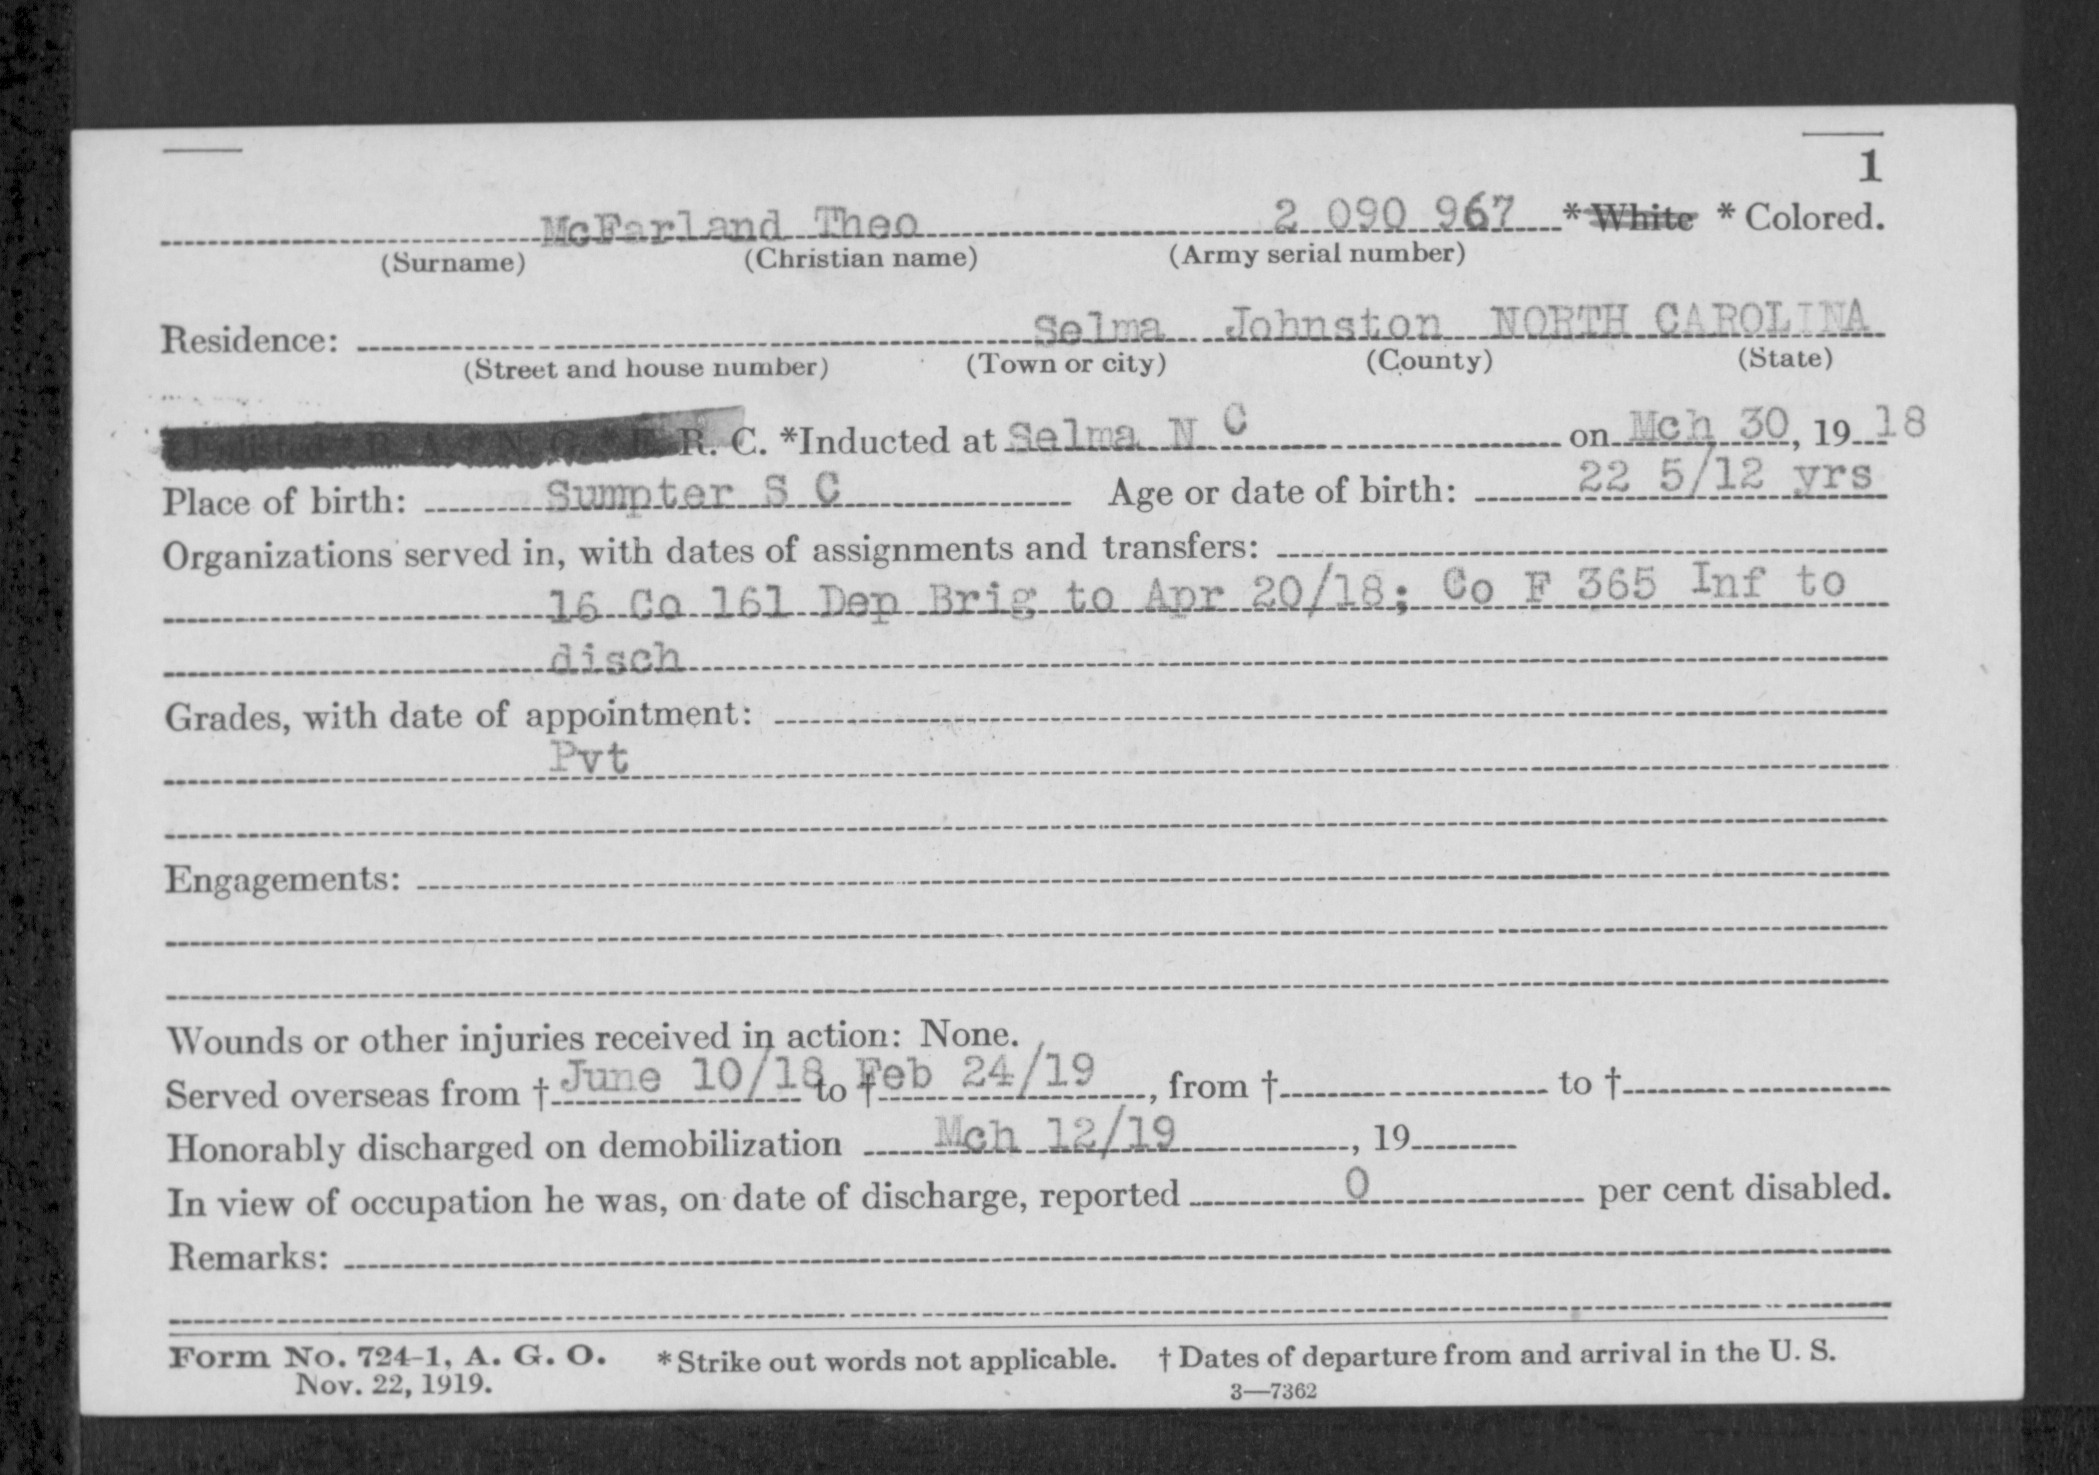 1
McFarland Theo 2 090 967 * White * Colored.
(Surname) (Christian name) (Army serial number)
Residence: Selma Johnston NORTH CAROLINA
(Street and house number) (Town or city) (County) (State)
Enlisted * R. A. * N. G. * E. R. C. *Inducted at Selma N C on Mch 30, 19 18
Place of birth: Sumpter S C Age or date of birth: 22 5/12 yrs
Organizations served in, with dates of assignments and transfers:
16 Co 161 Dep Brig to Apr 20/18; Co F 365 Inf to
disch
Grades, with date of appointment:
Pvt
Engagements:
Wounds or other injuries received in action: None.
Served overseas from † June 10/18 to † Feb 24/19, from † to †
Honorably discharged on demobilization Mch 12/19, 19
In view of occupation he was, on date of discharge, reported 0 per cent disabled.
Remarks:
Form No. 724-1, A. G. O. * Strike out words not applicable. † Dates of departure from and arrival in the U. S.
Nov. 22, 1919. 3—7362